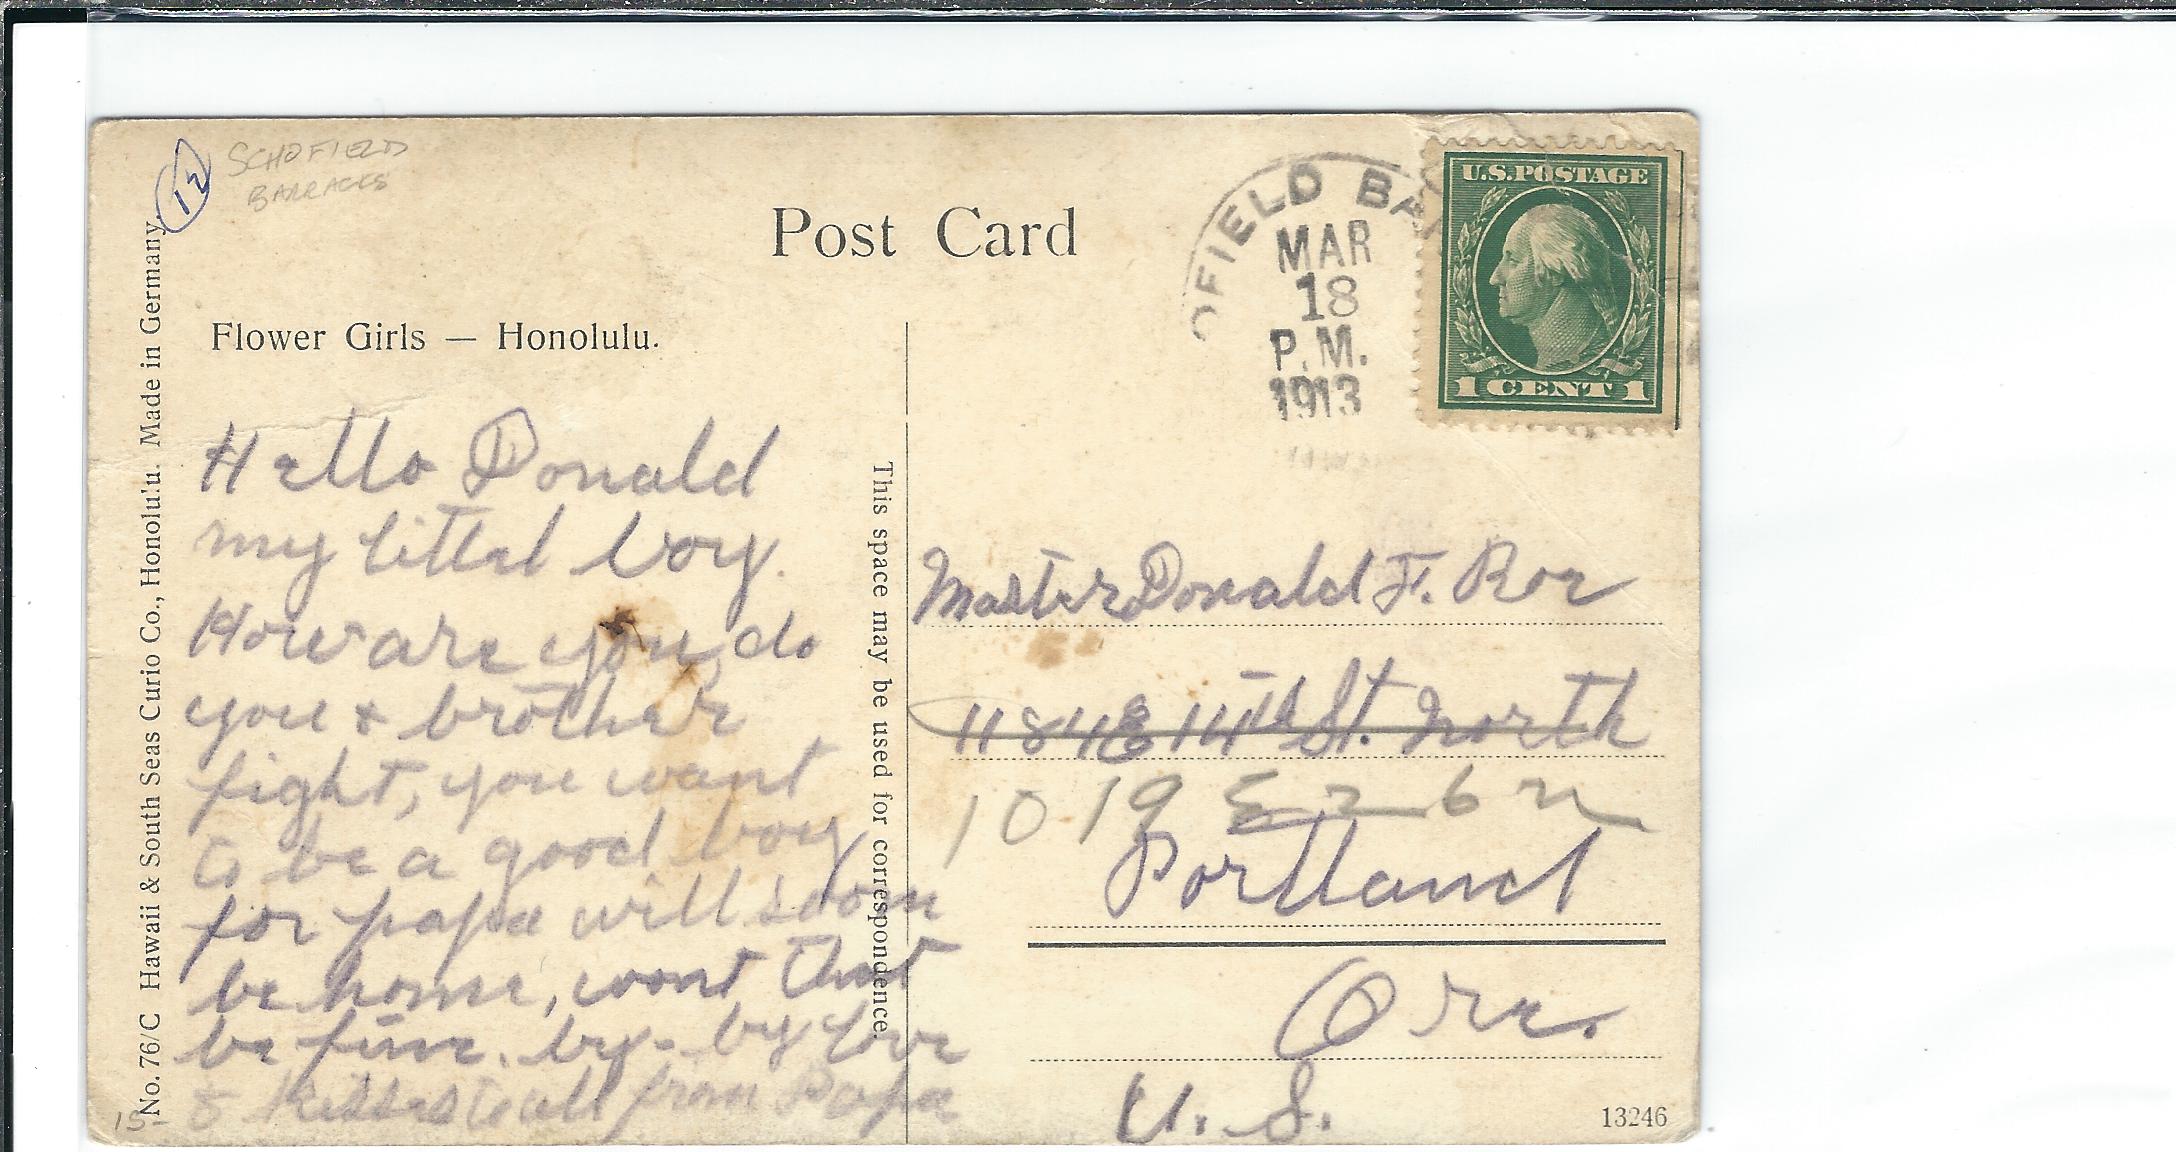 12
SCHOFIELD
BARRACKS
Post Card
OFIELD BAR
MAR
18
P.M.
1913
U.S. POSTAGE
1 CENT 1
Flower Girls — Honolulu.
No. 76/C Hawaii & South Seas Curio Co., Honolulu. Made in Germany.
This space may be used for correspondence.
Hello Donald
my littel boy.
How are you, do
you & brother
fight, you want
to be a good boy
for papa will soon
be home, wont that
be fine. by-by love
& Kisses to all from Papa
Master Donald F. Roe
1184 E 14th St. North
1019 E 26 N
Portland
Ore.
U. S.
13246
15-